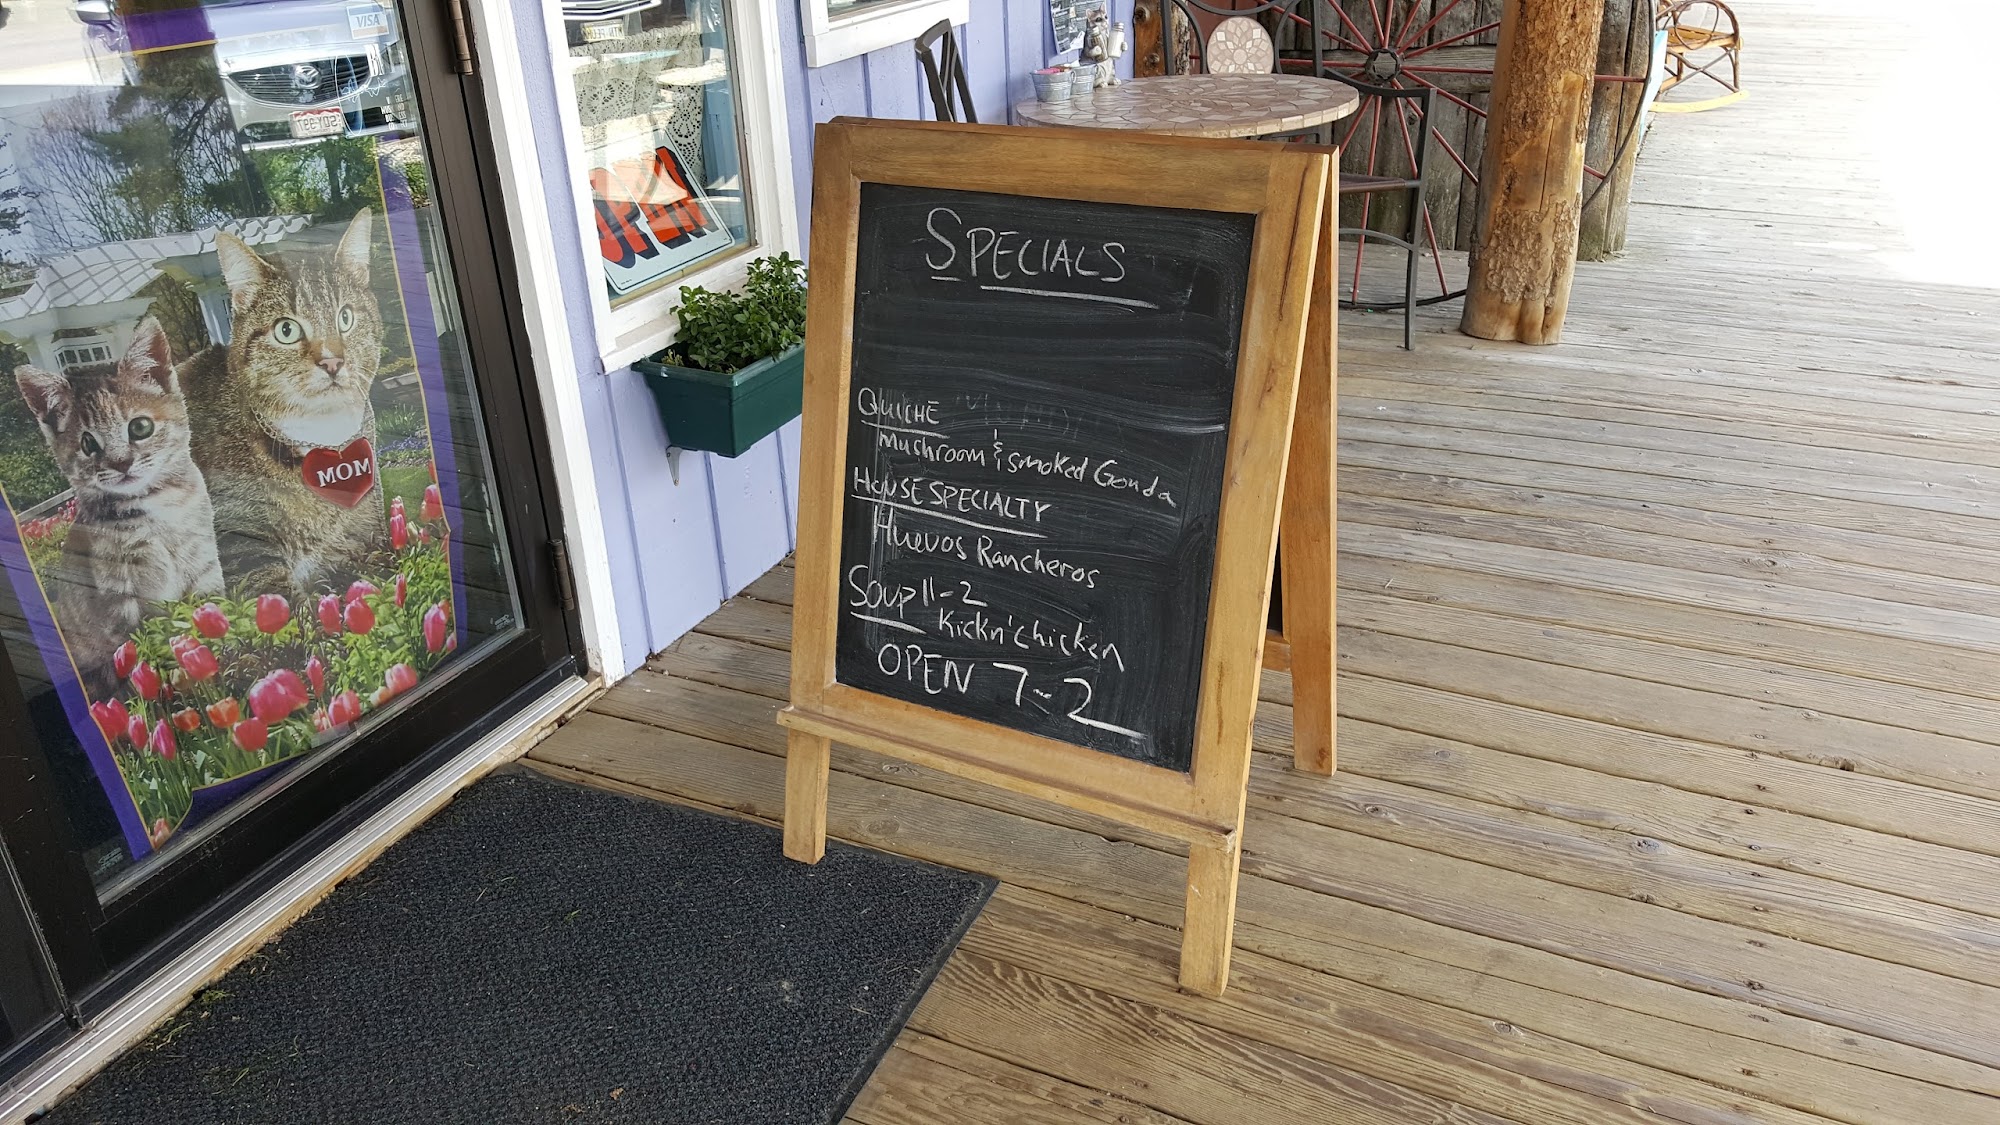 VISA
SDY-997
MOM
OPEN
SPECIALS
QUICHE
Mushroom & Smoked Gouda
HOUSE SPECIALTY
Huevos Rancheros
SOUP 11-2
Kickn' Chicken
OPEN 7-2